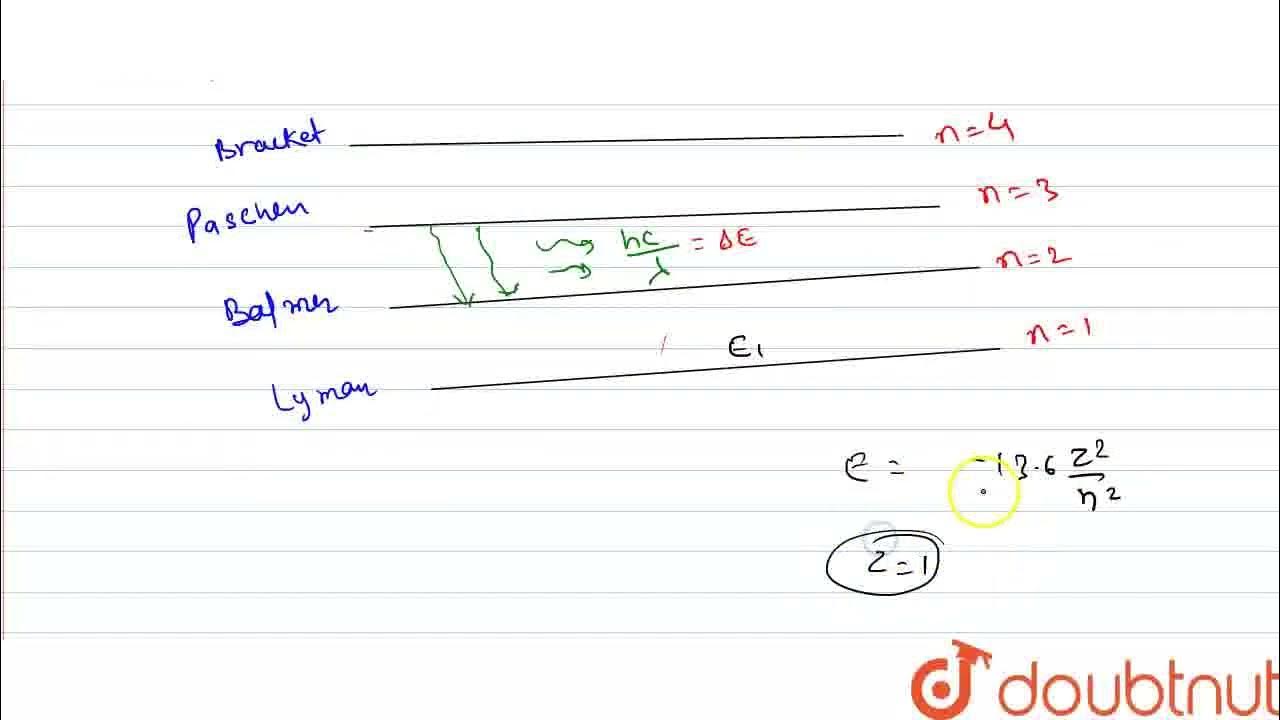 Bracket n=4
Paschen n=3
hc/λ = ΔE
Balmer n=2
E₁ n=1
Lyman
E = -13.6 Z²/n²
Z=1
doubtnut